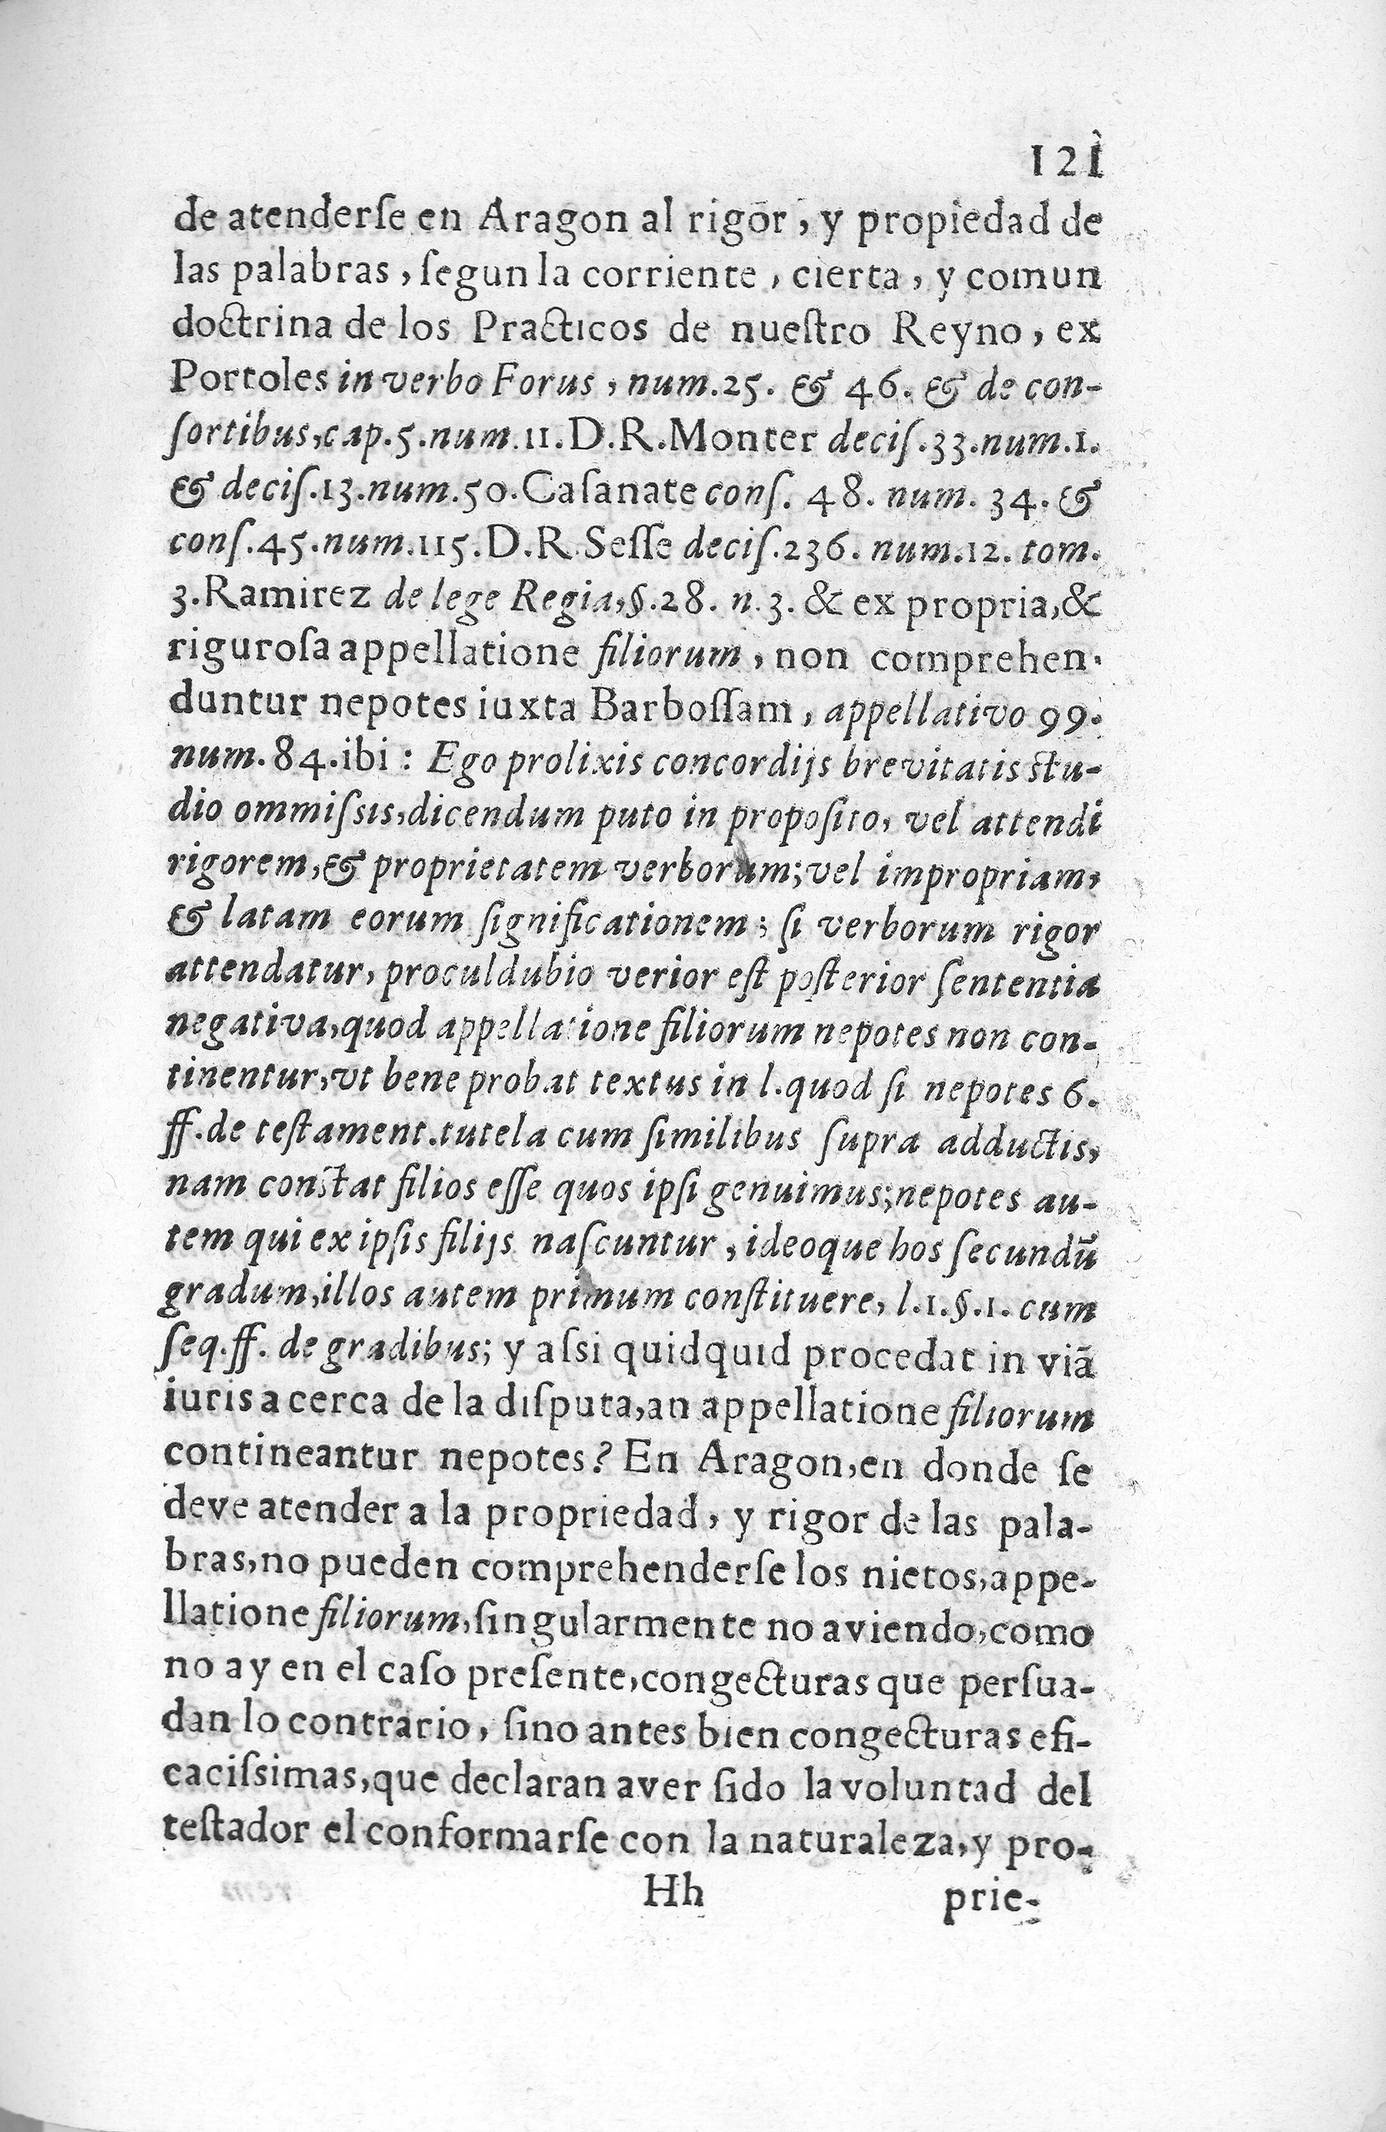 121
de atenderſe en Aragon al rigor, y propiedad de
las palabras, ſegun la corriente, cierta, y comun
doctrina de los Practicos de nueſtro Reyno, ex
Portoles in verbo Forus, num.25. & 46. & de con-
ſortibus,cap.5.num.11.D.R.Monter deciſ.33.num.1.
& deciſ.13.num.50.Caſanate conſ. 48. num. 34. &
conſ.45.num.115.D.R.Seſſe deciſ.236. num.12. tom.
3.Ramirez de lege Regia,§.28. n.3. & ex propria,&
riguroſa appellatione filiorum, non comprehen-
duntur nepotes iuxta Barboſſam, appellativo 99.
num.84.ibi: Ego prolixis concordijs brevitatis ſtu-
dio ommiſsis,dicendum puto in propoſito, vel attendi
rigorem,& proprietatem verborum; vel impropriam,
& latam eorum ſignificationem; ſi verborum rigor
attendatur, proculdubio verior eſt poſterior ſententia
negativa,quod appellatione filiorum nepotes non con-
tinentur,vt bene probat textus in l.quod ſi nepotes 6.
ff.de teſtament.tutela cum ſimilibus ſupra adductis,
nam conſtat filios eſſe quos ipſi genuimus;nepotes au-
tem qui ex ipſis filijs naſcuntur, ideoque hos ſecundũ
gradum,illos autem primum conſtituere, l.1.§.1. cum
ſeq.ff. de gradibus; y aſsi quidquid procedat in viã
iuris a cerca de la diſputa,an appellatione filiorum
contineantur nepotes? En Aragon,en donde ſe
deve atender a la propriedad, y rigor de las pala-
bras,no pueden comprehenderſe los nietos,appe-
llatione filiorum,ſingularmente no aviendo,como
no ay en el caſo preſente,congecturas que perſua-
dan lo contrario, ſino antes bien congecturas efi-
caciſsimas,que declaran aver ſido la voluntad del
teſtador el conformarſe con la naturaleza,y pro-
Hh prie-